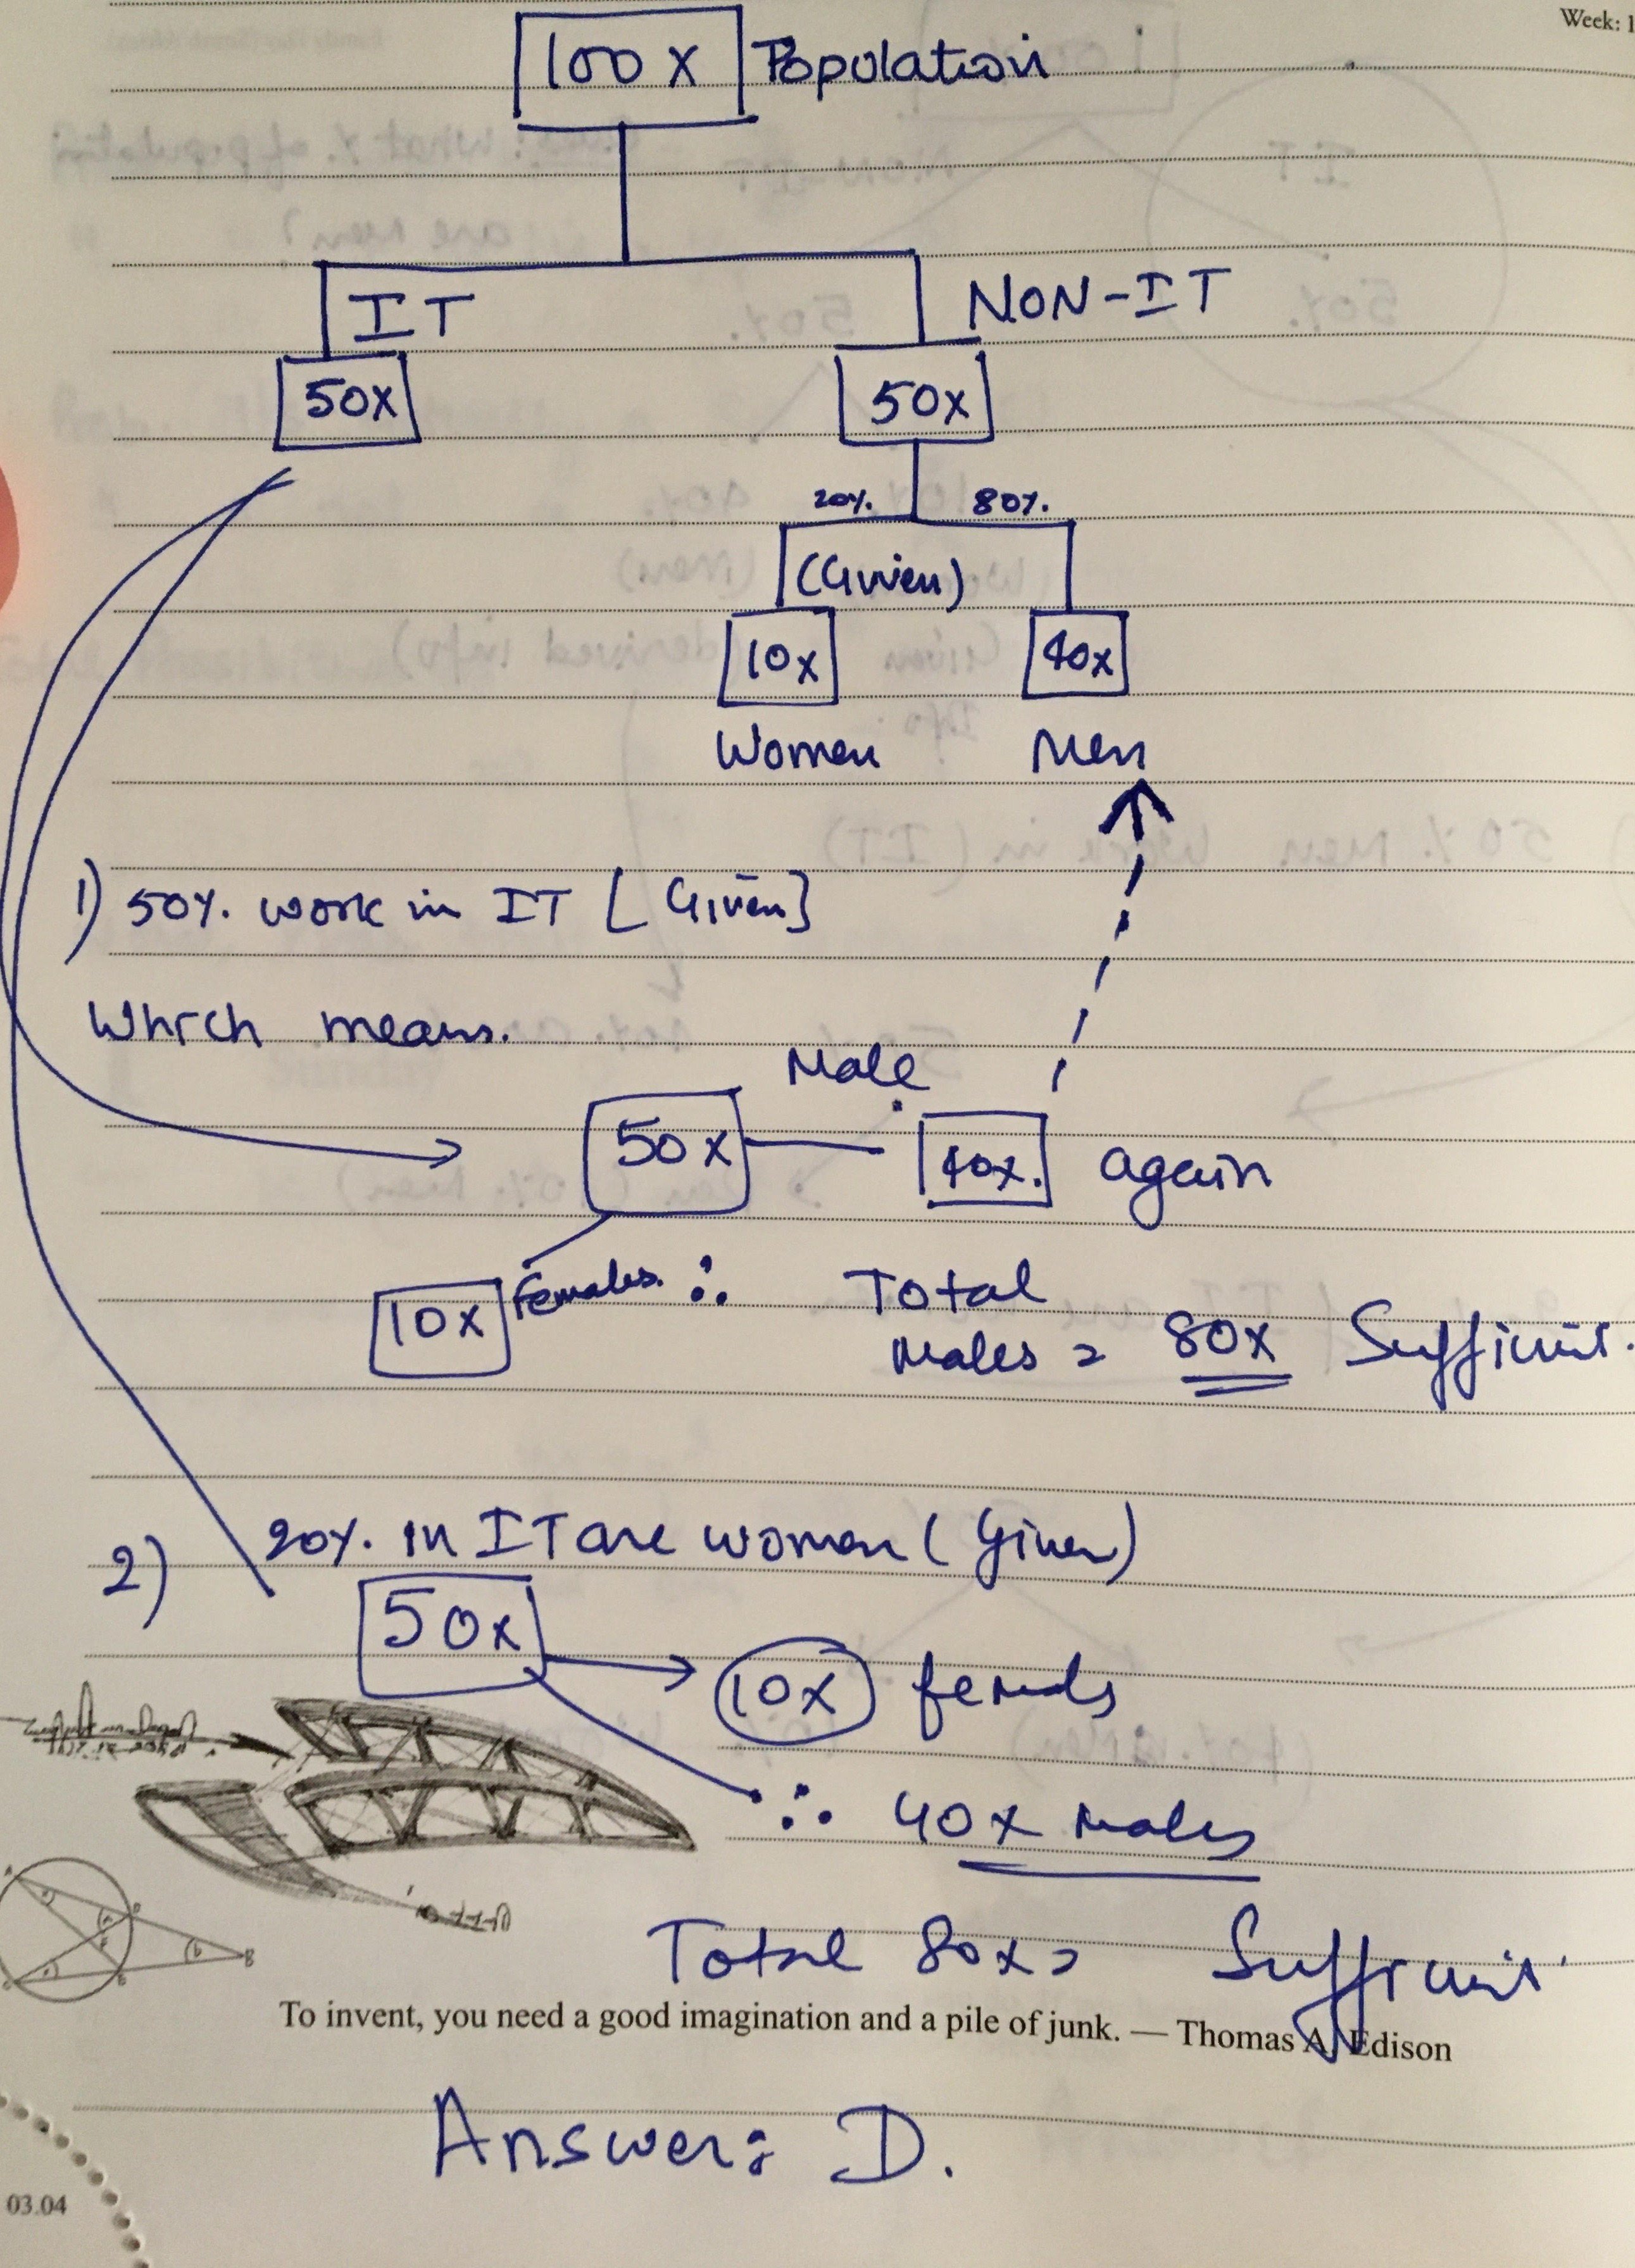 Week: 1
100x Population
IT NON-IT
50x 50x
20%. 80%.
(Given)
10x 40x
Women Men
1) 50%. work in IT [Given]
Which means.
Male
50x 40x. again
10x Females. ∴ Total
Males = 80x Sufficient.
2) 20%. in IT are women (Given)
50x
10x females
∴ 40x Males
Total 80x = Sufficient
To invent, you need a good imagination and a pile of junk. — Thomas A. Edison
Answer: D.
03.04